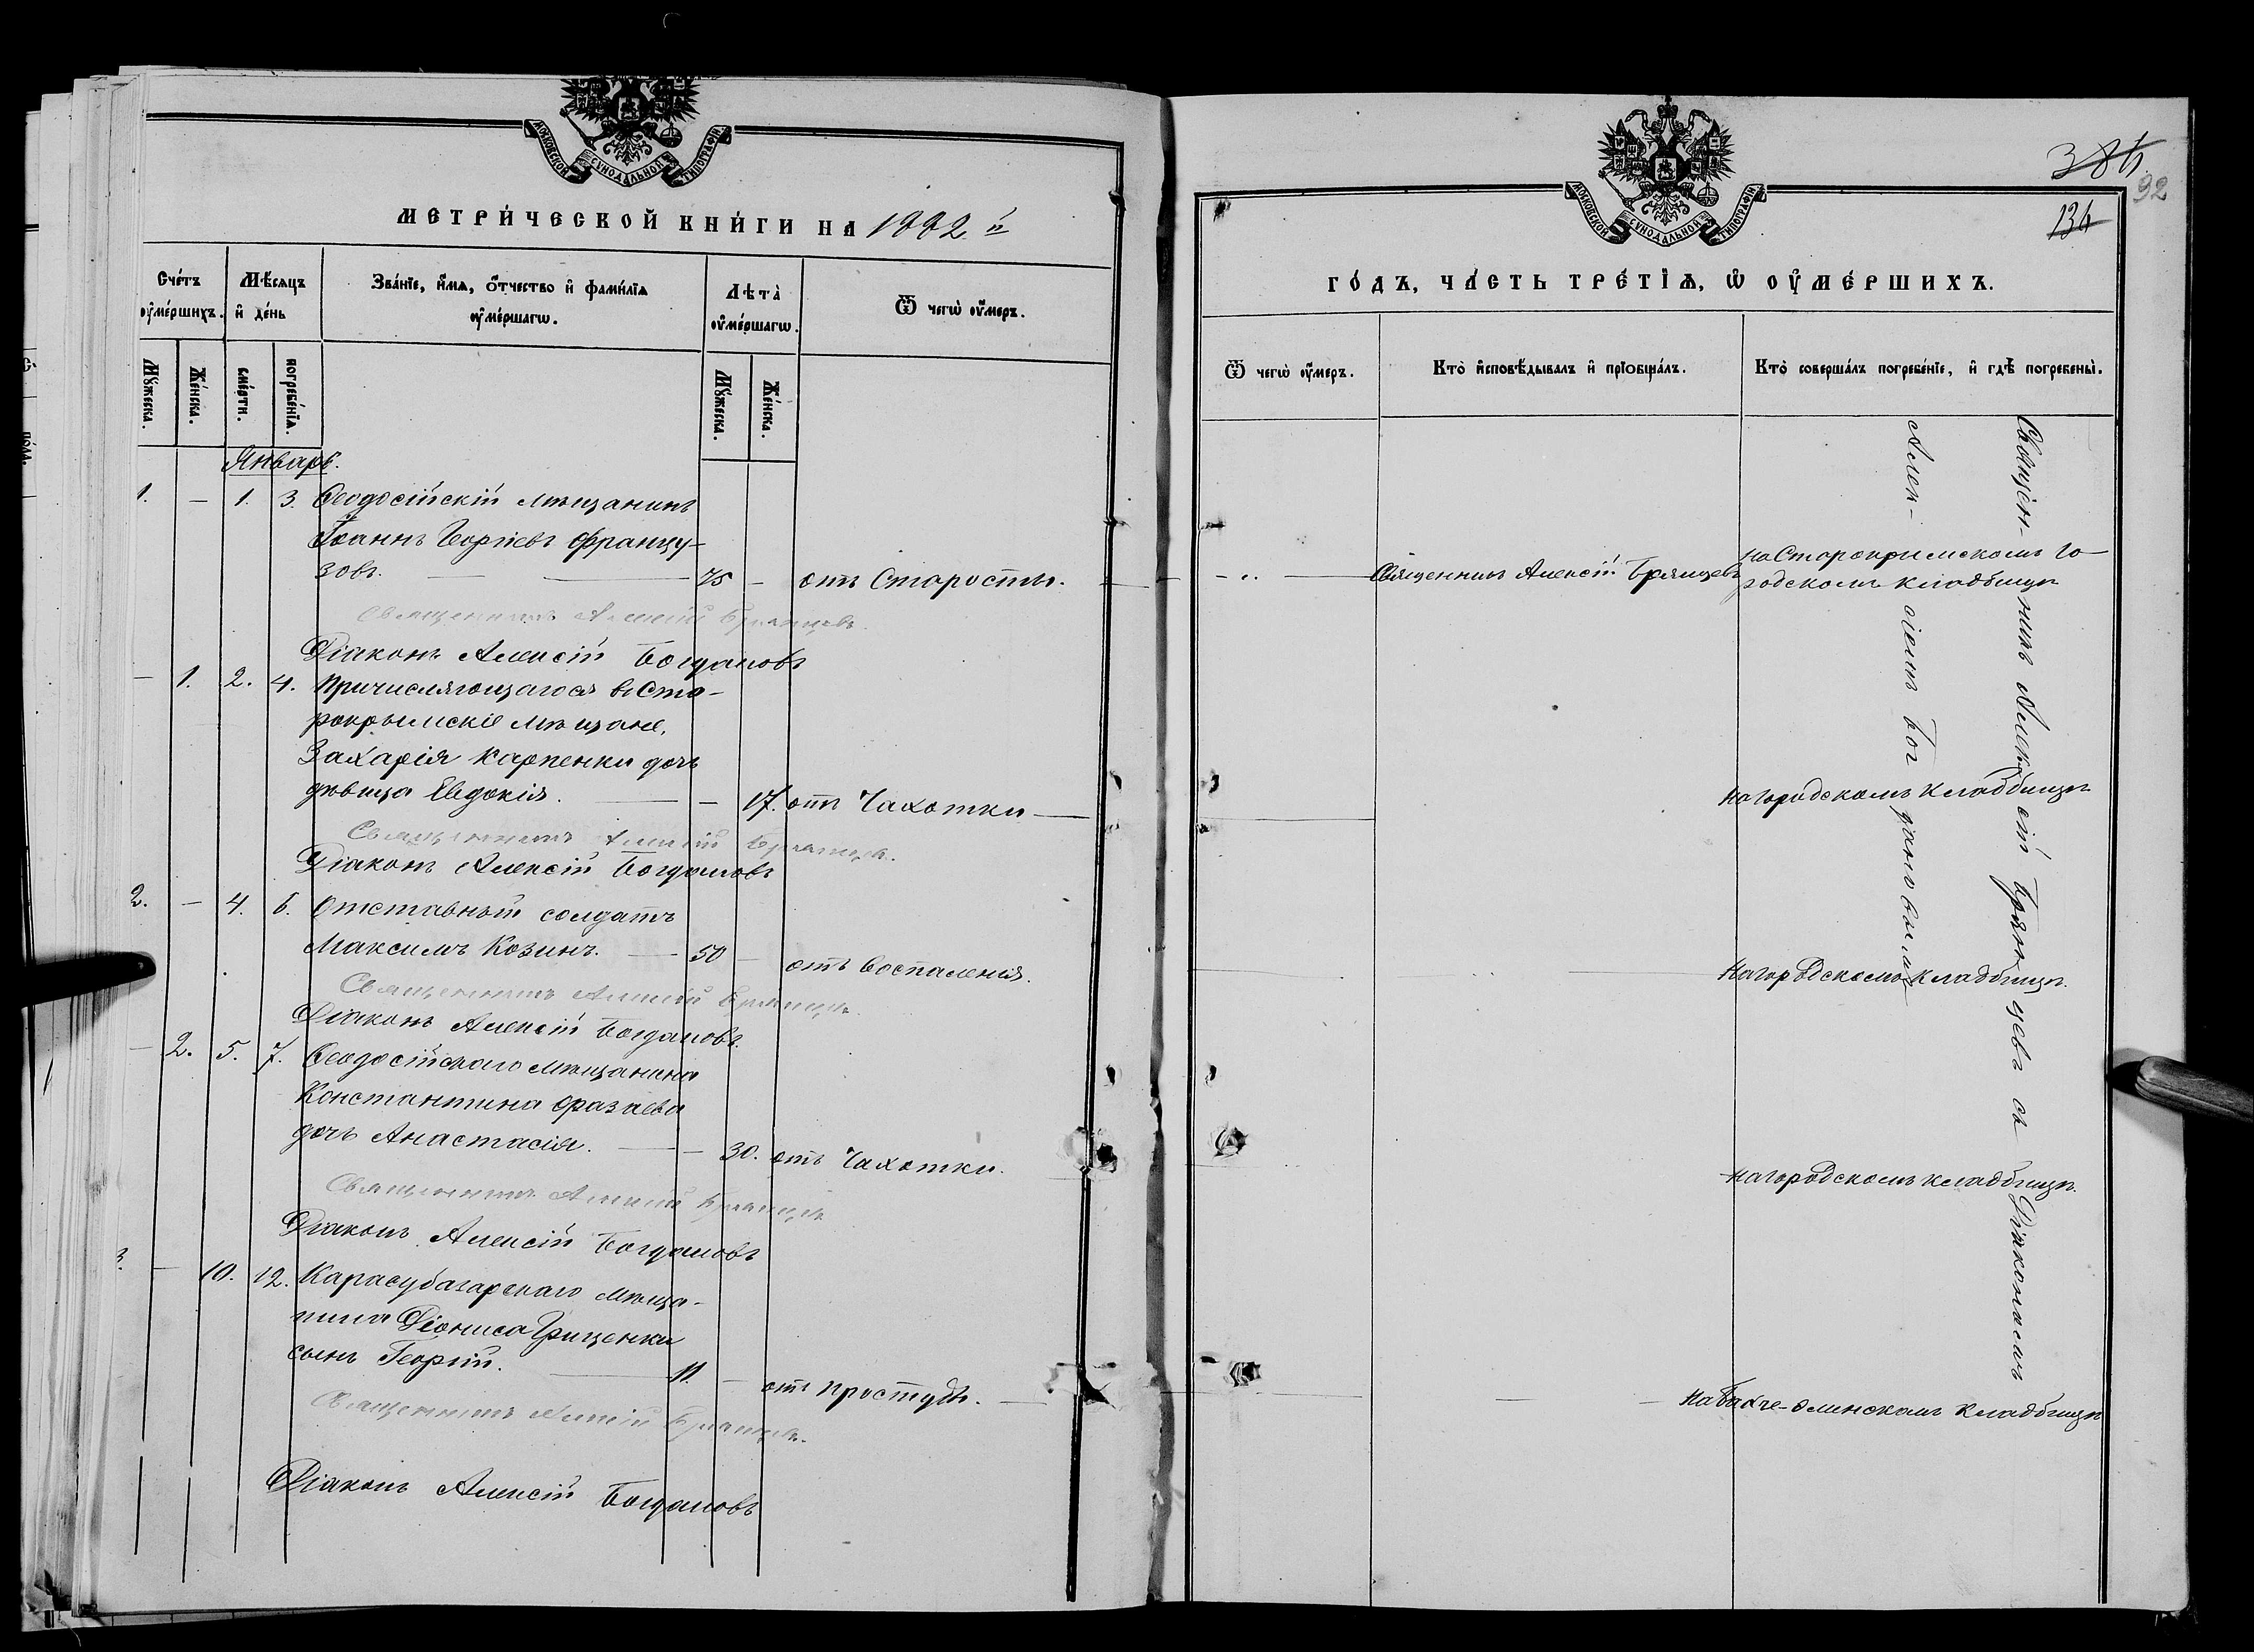 МОСКОВСКОЙ СѴНОДАЛЬНОЙ ТИПОГРАФІИ
МЕТРИ́ЧЕСКОЙ КНИ́ГИ НА 1882 й
Сче́тъ ᲂу҆ме́ршихъ.
Мѣ́сяцъ и҆ де́нь
Зва́нїе, и҆́мѧ, ѻ҆́тчество и҆ фами́лїѧ ᲂу҆ме́ршагѡ.
Лѣта̀ ᲂу҆ме́ршагѡ.
Ѿ чегѡ̀ ᲂу҆́меръ.
Мꙋ́жеска.
Же́нска.
сме́рти.
погребе́нїѧ.
Мꙋ́жеска.
Же́нска.
Январь.
1. — 1. 3. Ѳеодосійскій мѣщанинъ
Іоаннъ Георгіевъ Францу-
зовъ. — 75 — отъ Старости.
Священникъ Алексій Брянцевъ.
Діаконъ Алексій Богдановъ
— 1. 2. 4. Причисляющагося въ Ста-
рокрымскіе мѣщане,
Захарія Карпенки дочь
дѣвица Евдокія. — — 17. отъ Чахотки —
Священникъ Алексій Брянцевъ.
Діаконъ Алексій Богдановъ
2. — 4. 6. Отставный солдатъ
Максимъ Козинъ. — 50 — отъ воспаленія.
Священникъ Алексій Брянцевъ.
Діаконъ Алексій Богдановъ.
— 2. 5. 7. Ѳеодосійскаго мѣщанина
Константина
дочь Анастасія. — — 30. отъ Чахотки.
Священникъ Алексій Брянцевъ
Діаконъ Алексій Богдановъ
3. — 10. 12. Карасубазарскаго мѣща-
нина Діониса Гриценки
сынъ Георгій. — 11. — отъ простуды. —
Священникъ Алексій Брянцевъ.
Діаконъ Алексій Богдановъ
92
134
МОСКОВСКОЙ СѴНОДАЛЬНОЙ ТИПОГРАФІИ
ГО́ДЪ, ЧА́СТЬ ТРЕ́ТЇѦ, Ѡ҆ ОУ҆МЕ́РШИХЪ.
Ѿ чегѡ̀ ᲂу҆́меръ.
Кто̀ и҆сповѣ́дывалъ и҆ прїѻбща́лъ.
Кто̀ соверша́лъ погребе́нїе, и҆ гдѣ̀ погребены̀.
— „ — Священникъ Алексій Брянцевъ
на Старокрымскомъ го-
родскомъ кладбищѣ
на городскомъ кладбищѣ
на городскомъ кладбищѣ.
на городскомъ кладбищѣ.
— — на Бакче-Элинскомъ кладбищѣ
Священникъ Алексій Брянцевъ съ Діакономъ
Алексіемъ Богдановымъ